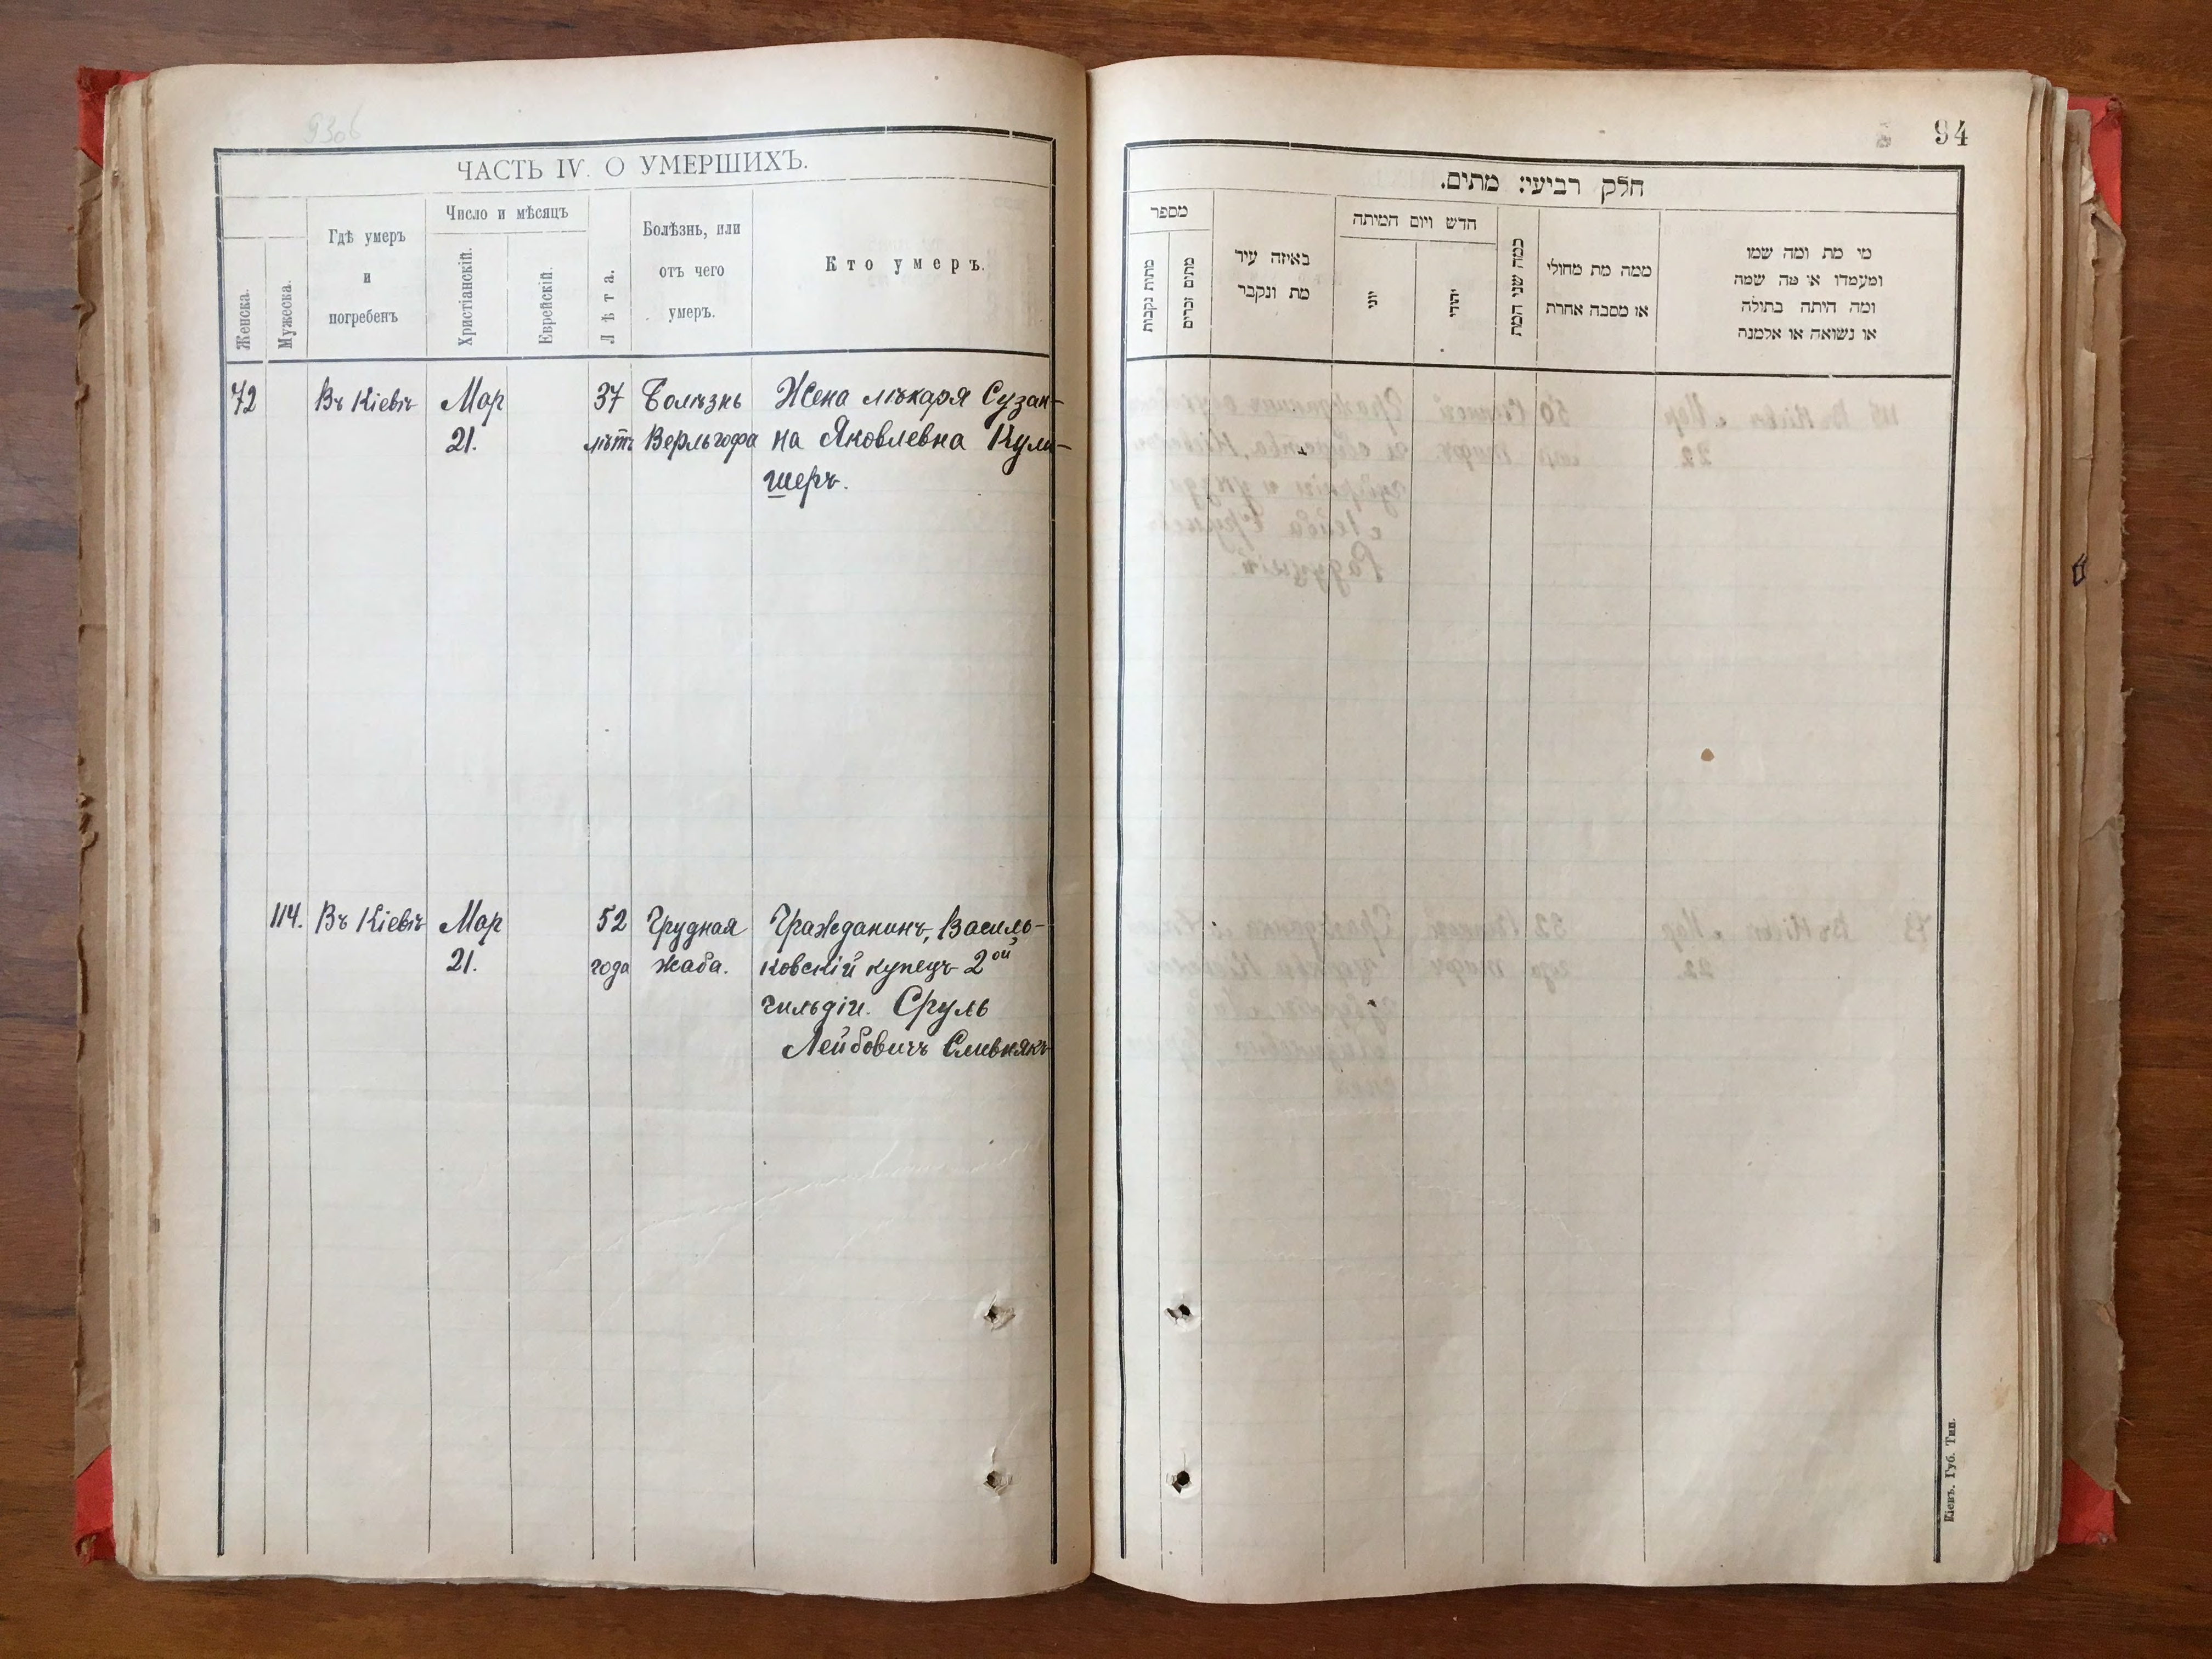 93об
ЧАСТЬ IV. О УМЕРШИХЪ.
Женска.
Мужеска.
Гдѣ умеръ
и
погребенъ
Число и мѣсяцъ
Христіанскій.
Еврейскій.
Лѣта.
Болѣзнь, или
отъ чего
умеръ.
Кто умеръ.
72 Въ Кіевѣ Мар 37 Болѣзнь Жена лѣкаря Сузан-
21. лѣтъ Верльгофа на Яковлевна Кули-
шеръ.
114. Въ Кіевѣ Мар 52 Грудная Гражданинъ, Василь-
21. года жаба. ковскій купецъ 2ой
гильдіи. Сруль
Лейбовичъ Сливнякъ
94
חלק רביעי: מתים.
מספר
מתות נקבות
מתים זכרים
באיזה עיר
מת ונקבר
חדש ויום המיתה
יוני
יהודי
כמה שני המת
ממה מת מחולי
או מסבה אחרת
מי מת ומה שמו
ומעמדו או מה שמה
ומה היתה בתולה
או נשואה או אלמנה
Кіевъ. Губ. Тип.